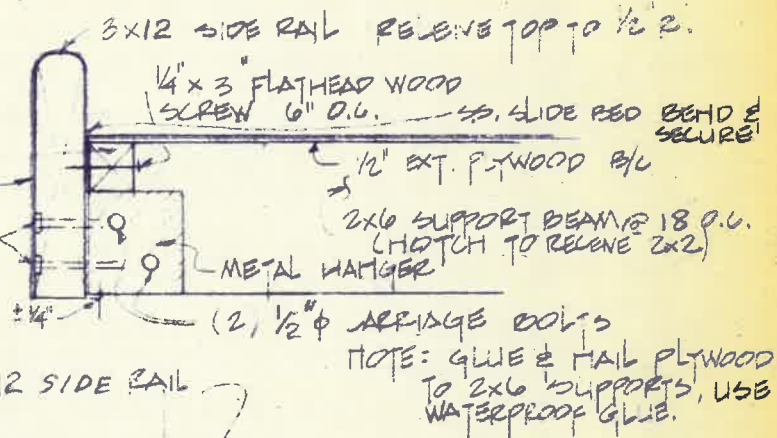 3x12 SIDE RAIL RELEIVE TOP TO 1/2" R.
1/4" x 3" FLATHEAD WOOD
SCREW 6" O.C.
SS. SLIDE BED BEND &
SECURE
1/2" EXT. PLYWOOD B/C
2x6 SUPPORT BEAM @ 18 O.C.
(NOTCH TO RECEIVE 2x2)
METAL HANGER
± 1/4"
(2) 1/2" φ CARRIAGE BOLTS
NOTE: GLUE & NAIL PLYWOOD
TO 2x6 SUPPORTS, USE
WATERPROOF GLUE.
2 SIDE RAIL